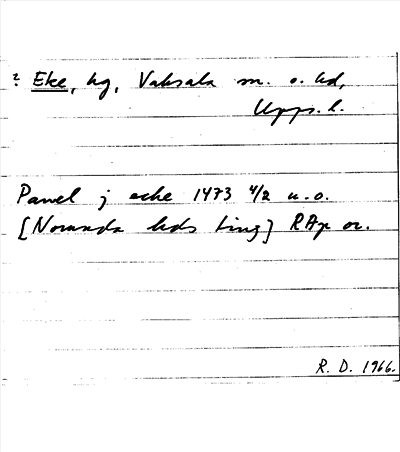 ? Eke, hg, Vaksala sn. o. hd,
Upps. l.
Pawel j eke 1473 4/2 u.o.
[Norunda hds ting] RAp or.
R. D. 1966.